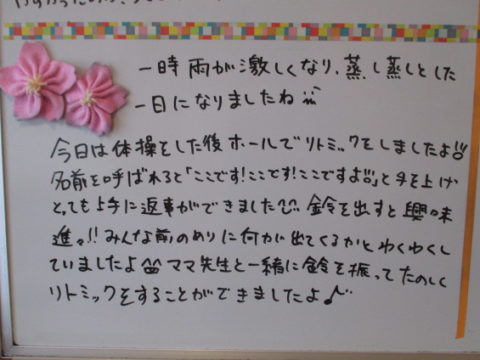 一時雨が激しくなり、蒸し蒸しとした
一日になりましたね
今日は体操をした後ホールでリトミックをしましたよ!!
名前を呼ばれると「ここです!ここです!ここですよ!!」と手を上げ
とっても上手に返事ができました 鈴を出すと興味
進々!!みんな前のめりに何が出てくるかとわくわくし
ていましたよ ママ先生と一緒に鈴を振ってたのしく
リトミックをすることができましたよ♪